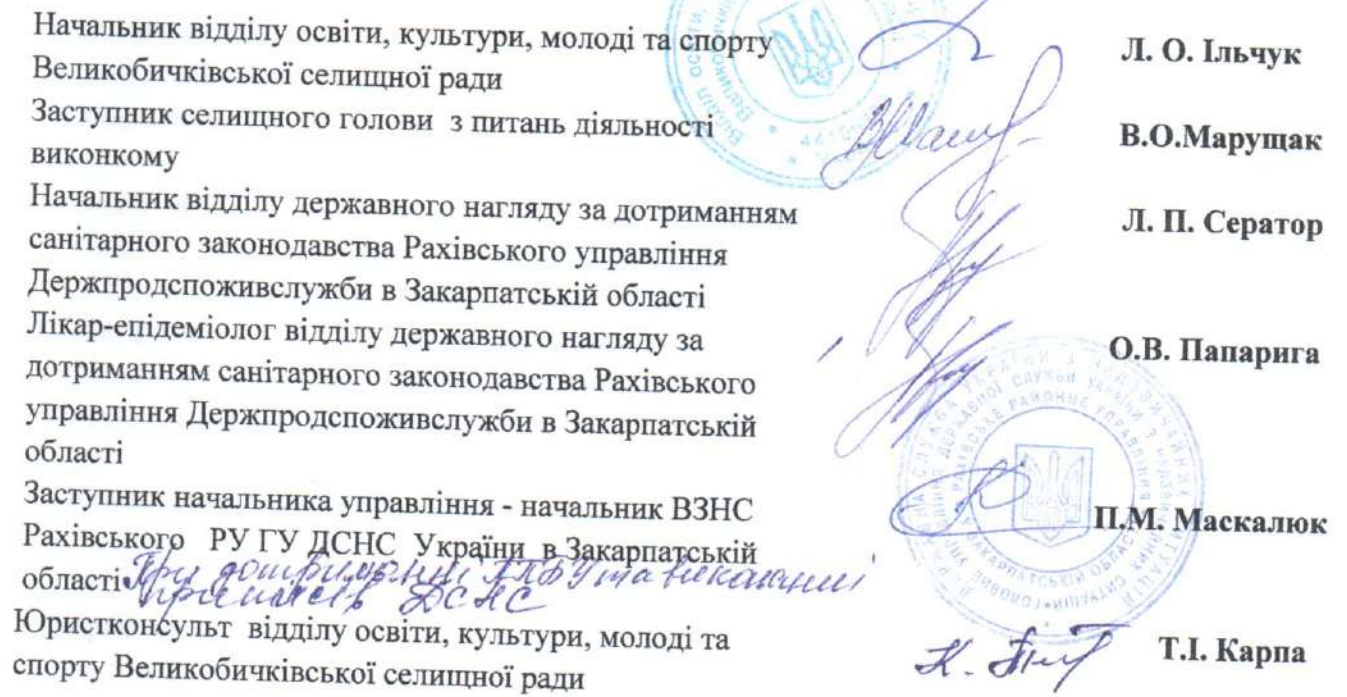 Начальник відділу освіти, культури, молоді та спорту
Великобичківської селищної ради
Л. О. Ільчук
Заступник селищного голови з питань діяльності
виконкому
В.О.Марущак
Начальник відділу державного нагляду за дотриманням
санітарного законодавства Рахівського управління
Держпродспоживслужби в Закарпатській області
Л. П. Сератор
Лікар-епідеміолог відділу державного нагляду за
дотриманням санітарного законодавства Рахівського
управління Держпродспоживслужби в Закарпатській
області
О.В. Папарига
Заступник начальника управління - начальник ВЗНС
Рахівського РУ ГУ ДСНС України в Закарпатській
області
П.М. Маскалюк
При дотриманні ППБУ та виконанні
приписів ДСНС
Юристконсульт відділу освіти, культури, молоді та
спорту Великобичківської селищної ради
Т.І. Карпа